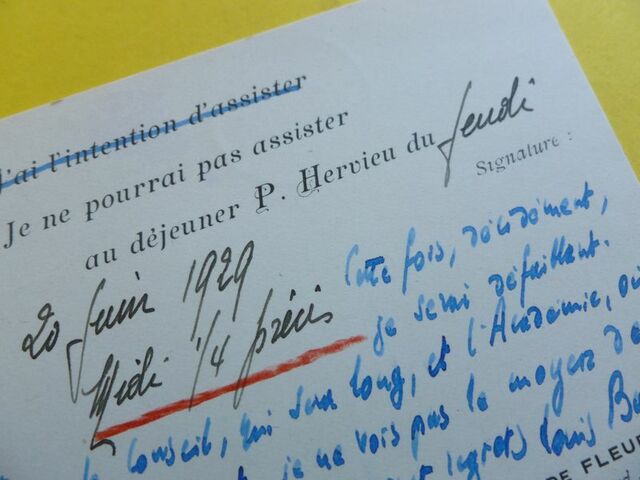 J'ai l'intention d'assister
Je ne pourrai pas assister
au déjeuner P. Hervieu du Jeudi
Signature :
20 Juin 1929
Midi 1/4 précis
Cette fois, décidément,
je serai défaillant.
conseil, qui sera long, et l'Académie, où
je ne vois pas le moyen de
regrets Louis
DE FLEU